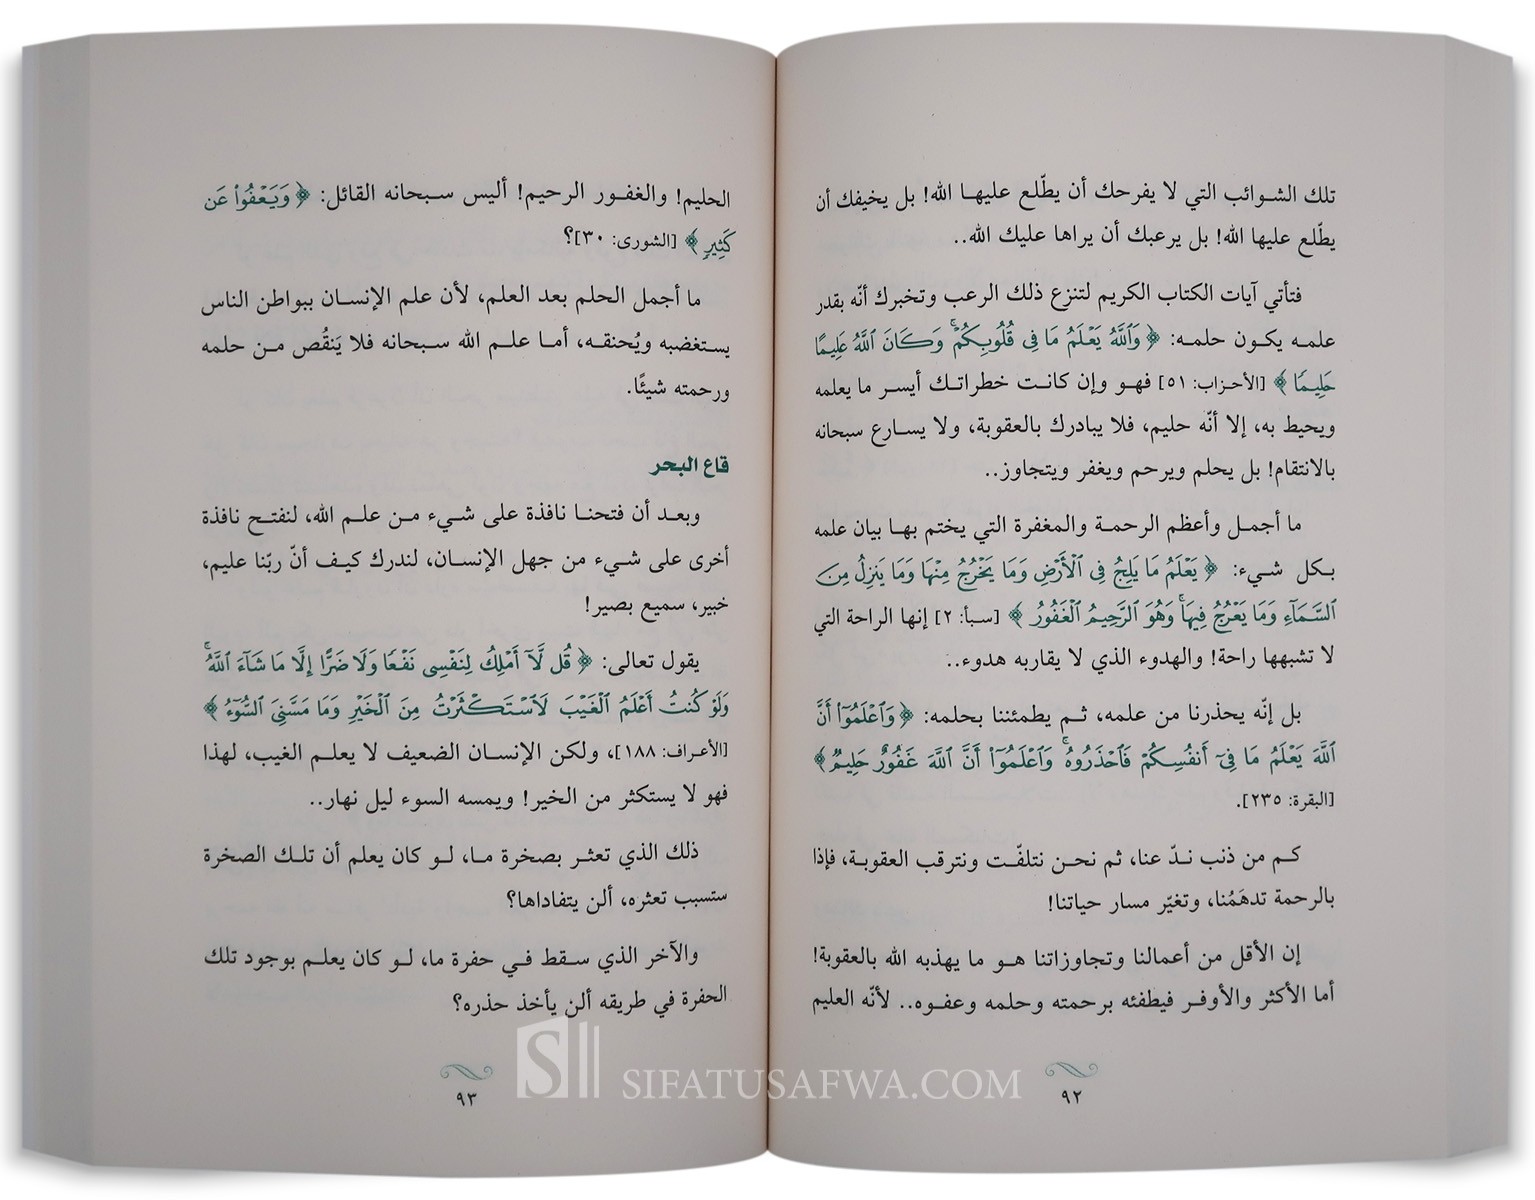 تلك الشوائب التي لا يفرحك أن يطّلع عليها الله! بل يخيفك أن
يطّلع عليها الله! بل يرعبك أن يراها عليك الله..
فتأتي آيات الكتاب الكريم لتنزع ذلك الرعب وتخبرك أنّه بقدر
علمه يكون حلمه: ﴿ وَٱللَّهُ يَعْلَمُ مَا فِى قُلُوبِكُمْ ۚ وَكَانَ ٱللَّهُ عَلِيمًا
حَلِيمًا ﴾ [الأحزاب: ٥١] فهو وإن كانت خطراتك أيسر ما يعلمه
ويحيط به، إلا أنّه حليم، فلا يبادرك بالعقوبة، ولا يسارع سبحانه
بالانتقام! بل يحلم ويرحم ويغفر ويتجاوز..
ما أجمل وأعظم الرحمة والمغفرة التي يختم بها بيان علمه
بكل شيء: ﴿ يَعْلَمُ مَا يَلِجُ فِى ٱلْأَرْضِ وَمَا يَخْرُجُ مِنْهَا وَمَا يَنزِلُ مِنَ
ٱلسَّمَآءِ وَمَا يَعْرُجُ فِيهَا ۚ وَهُوَ ٱلرَّحِيمُ ٱلْغَفُورُ ﴾ [سبأ: ٢] إنها الراحة التي
لا تشبهها راحة! والهدوء الذي لا يقاربه هدوء..
بل إنّه يحذرنا من علمه، ثم يطمئننا بحلمه: ﴿ وَٱعْلَمُوٓا۟ أَنَّ
ٱللَّهَ يَعْلَمُ مَا فِىٓ أَنفُسِكُمْ فَٱحْذَرُوهُ ۚ وَٱعْلَمُوٓا۟ أَنَّ ٱللَّهَ غَفُورٌ حَلِيمٌ ﴾
[البقرة: ٢٣٥].
كم من ذنب ندّ عنا، ثم نحن نتلفّت ونترقب العقوبة، فإذا
بالرحمة تدهَمُنا، وتغيّر مسار حياتنا!
إن الأقل من أعمالنا وتجاوزاتنا هو ما يهذبه الله بالعقوبة!
أما الأكثر والأوفر فيطفئه برحمته وحلمه وعفوه.. لأنّه العليم
٩٢
الحليم! والغفور الرحيم! أليس سبحانه القائل: ﴿ وَيَعْفُوا۟ عَن
كَثِيرٍ ﴾ [الشورى: ٣٠]؟
ما أجمل الحلم بعد العلم، لأن علم الإنسان ببواطن الناس
يستغضبه ويُحنقه، أما علم الله سبحانه فلا يَنقُص من حلمه
ورحمته شيئًا.
قاع البحر
وبعد أن فتحنا نافذة على شيء من علم الله، لنفتح نافذة
أخرى على شيء من جهل الإنسان، لندرك كيف أنّ ربّنا عليم،
خبير، سميع بصير!
يقول تعالى: ﴿ قُل لَّآ أَمْلِكُ لِنَفْسِى نَفْعًا وَلَا ضَرًّا إِلَّا مَا شَآءَ ٱللَّهُ ۚ
وَلَوْ كُنتُ أَعْلَمُ ٱلْغَيْبَ لَٱسْتَكْثَرْتُ مِنَ ٱلْخَيْرِ وَمَا مَسَّنِىَ ٱلسُّوٓءُ ﴾
[الأعراف: ١٨٨]، ولكن الإنسان الضعيف لا يعلم الغيب، لهذا
فهو لا يستكثر من الخير! ويمسه السوء ليل نهار..
ذلك الذي تعثر بصخرة ما، لو كان يعلم أن تلك الصخرة
ستسبب تعثره، ألن يتفاداها؟
والآخر الذي سقط في حفرة ما، لو كان يعلم بوجود تلك
الحفرة في طريقه ألن يأخذ حذره؟
٩٣
S SIFATUSAFWA.COM